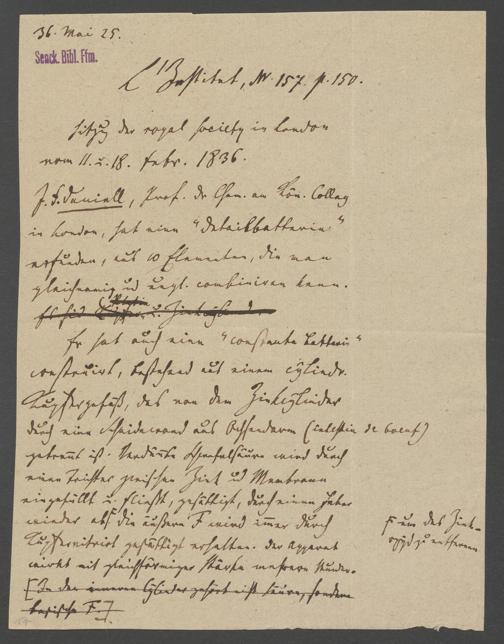 36. Mai 25.
Senck. Bibl. Ffm.
L'Institut, No. 157. p. 150.
Sitzg der royal Society in London
vom 11. u. 18. Febr. 1836.
J. F. Daniell, Prof. dr Chem. am Kön. Colleg
in London, hat eine "Detailbatterie"
erfunden, aus 10 Elementen, die man
gleichnamig ud ungl. combiniren kann.
Es sind Kupfer- u. Zinkcylinder
Er hat auch eine "constante Batterie"
construirt, bestehend aus einem cylindr.
Kupfergefäß, das von dem Zinkcylinder
durch eine Scheidewand aus Ochsendarm (intestin de boeuf)
getrennt ist. Verdünnte Schwefelsäure wird durch
einen Trichter zwischen Zink ud Membrane
eingefüllt u. fließt, gesättigt, durch einen Heber
wieder ab; die äußere F wird immer durch
Kupfernitrict gesättigt erhalten. Der Apparat
wirkt mit gleichförmiger Stärke mehrere Stunden.
[In den inneren Cylinder gehört nicht Säure, sondern
basische F.]
F um das Zink-
oxyd zu entfernen